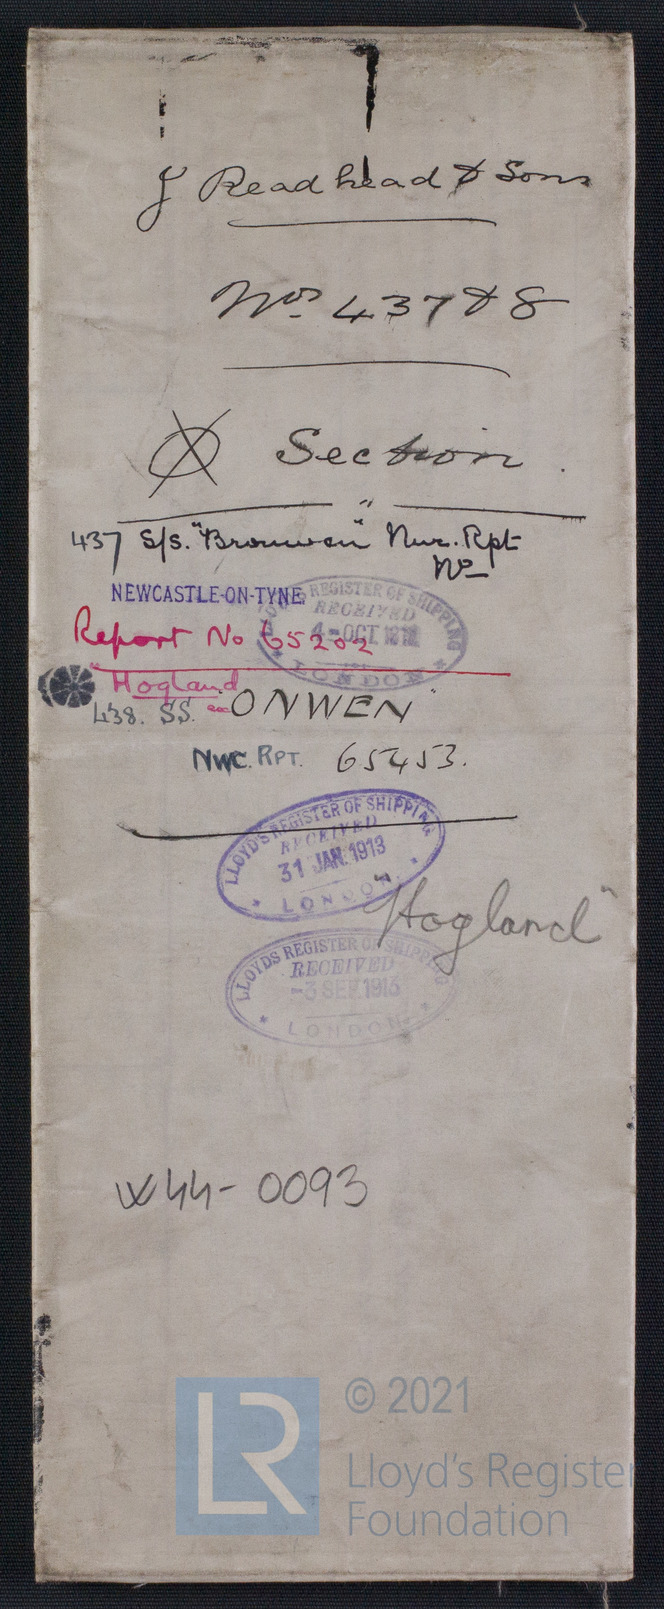 J Readhead & Sons
Nos. 437 & 8
Section.
437 S/S. "Bronwen" Nwc. Rpt
No
NEWCASTLE-ON-TYNE
LLOYDS REGISTER OF SHIPPING
RECEIVED
4-OCT 1912
LONDON
Report No 65202
"Hogland
438. SS. ONWEN"
NWC. RPT. 65453.
LLOYD'S REGISTER OF SHIPPING
RECEIVED
31 JAN. 1913
LONDON.
"Hogland"
LLOYDS REGISTER OF SHIPPING
RECEIVED
-3 SEP 1913
LONDON
W44-0093
LR
© 2021
Lloyd's Register
Foundation